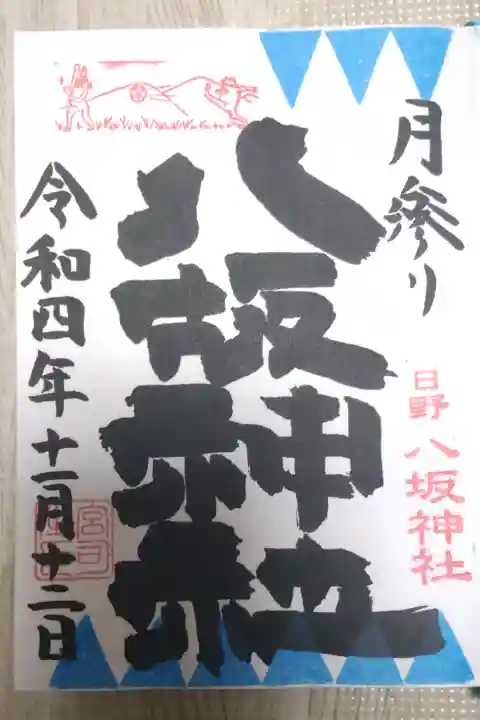 月参り
日野 八坂神社
八坂神社
令和四年十一月十二日